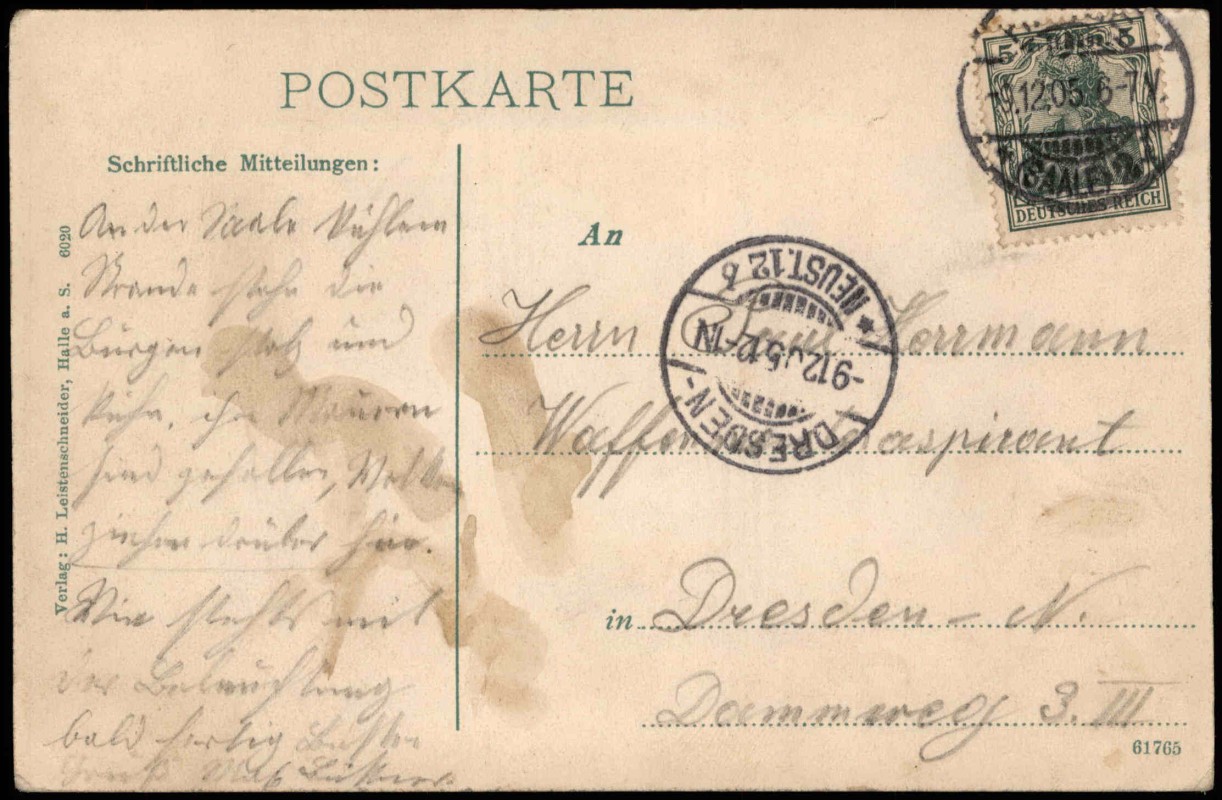 POSTKARTE
Schriftliche Mitteilungen:
An der Saale kühlem
Strande stehe die
Burgen stolz und
kühn, ihre Mauern
sind gefallen, Wolken
ziehen drüber hin.
Wie stehts mit
der Beleuchtung
bald fertig Besten
Gruß Max
Verlag: H. Leistenschneider, Halle a. S. 6020
5 5
DEUTSCHES REICH
9.12.05. 6-7N.
(SAALE) 2
An
Herrn Paul Herrmann
Waffen aspirant
in Dresden-N.
Dammweg 3. III
DRESDEN-
-9.12.05.12-1N
*NEUST.12 b
61765